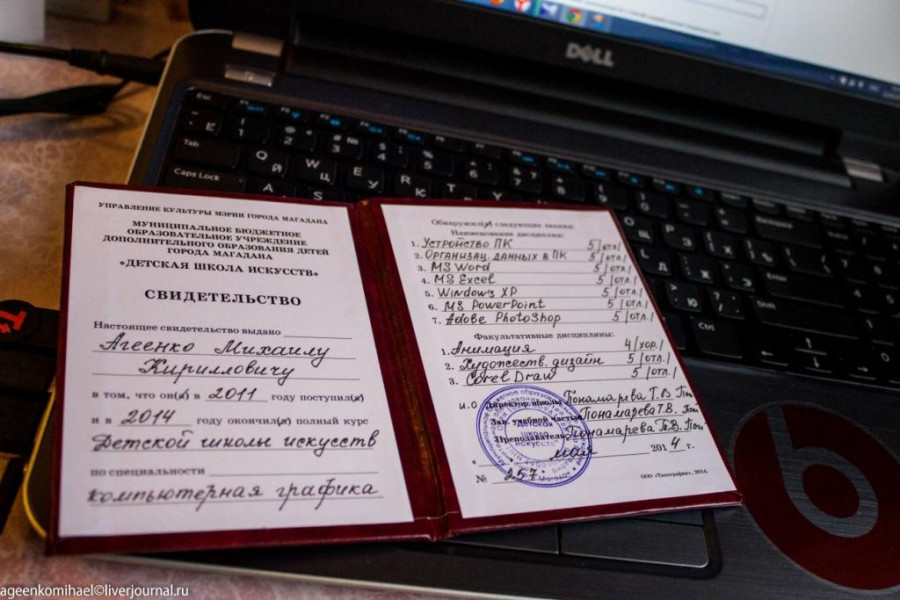 DELL
Esc
Tab
Caps Lock
Q Й
W Ц
E У
A
S
Shift
Ctrl
УПРАВЛЕНИЕ КУЛЬТУРЫ МЭРИИ ГОРОДА МАГАДАНА
МУНИЦИПАЛЬНОЕ БЮДЖЕТНОЕ
ОБРАЗОВАТЕЛЬНОЕ УЧРЕЖДЕНИЕ
ДОПОЛНИТЕЛЬНОГО ОБРАЗОВАНИЯ ДЕТЕЙ
ГОРОДА МАГАДАНА
«ДЕТСКАЯ ШКОЛА ИСКУССТВ»
СВИДЕТЕЛЬСТВО
Настоящее свидетельство выдано
Агеенко Михаилу
Кирилловичу
в том, что он(а) в 2011 году поступил(а)
и в 2014 году окончил(а) полный курс
Детской школы искусств
по специальности
компьютерная графика
Обнаружил(а) следующие знания:
Наименование дисциплин:
1. Устройство ПК 5 /отл./
2. Организац. данных в ПК 5 /отл./
3. MS Word 5 /отл./
4. MS Excel 5 /отл./
5. Windows XP 5 /отл./
6. MS PowerPoint 5 /отл./
7. Adobe PhotoShop 5 /отл./
Факультативные дисциплины:
1. Анимация 4 /хор./
2. Художеств. дизайн 5 /отл./
3. Corel Draw 5 /отл./
и.о Директор школы Пономарева Т.В.
Зав. учебной частью Пономарева Т.В.
Преподаватель Пономарева Т.В.
Детская школа искусств
май 2014 г.
№ 257
ООО «Типография», 2014.
ageenkomihael©liverjournal.ru